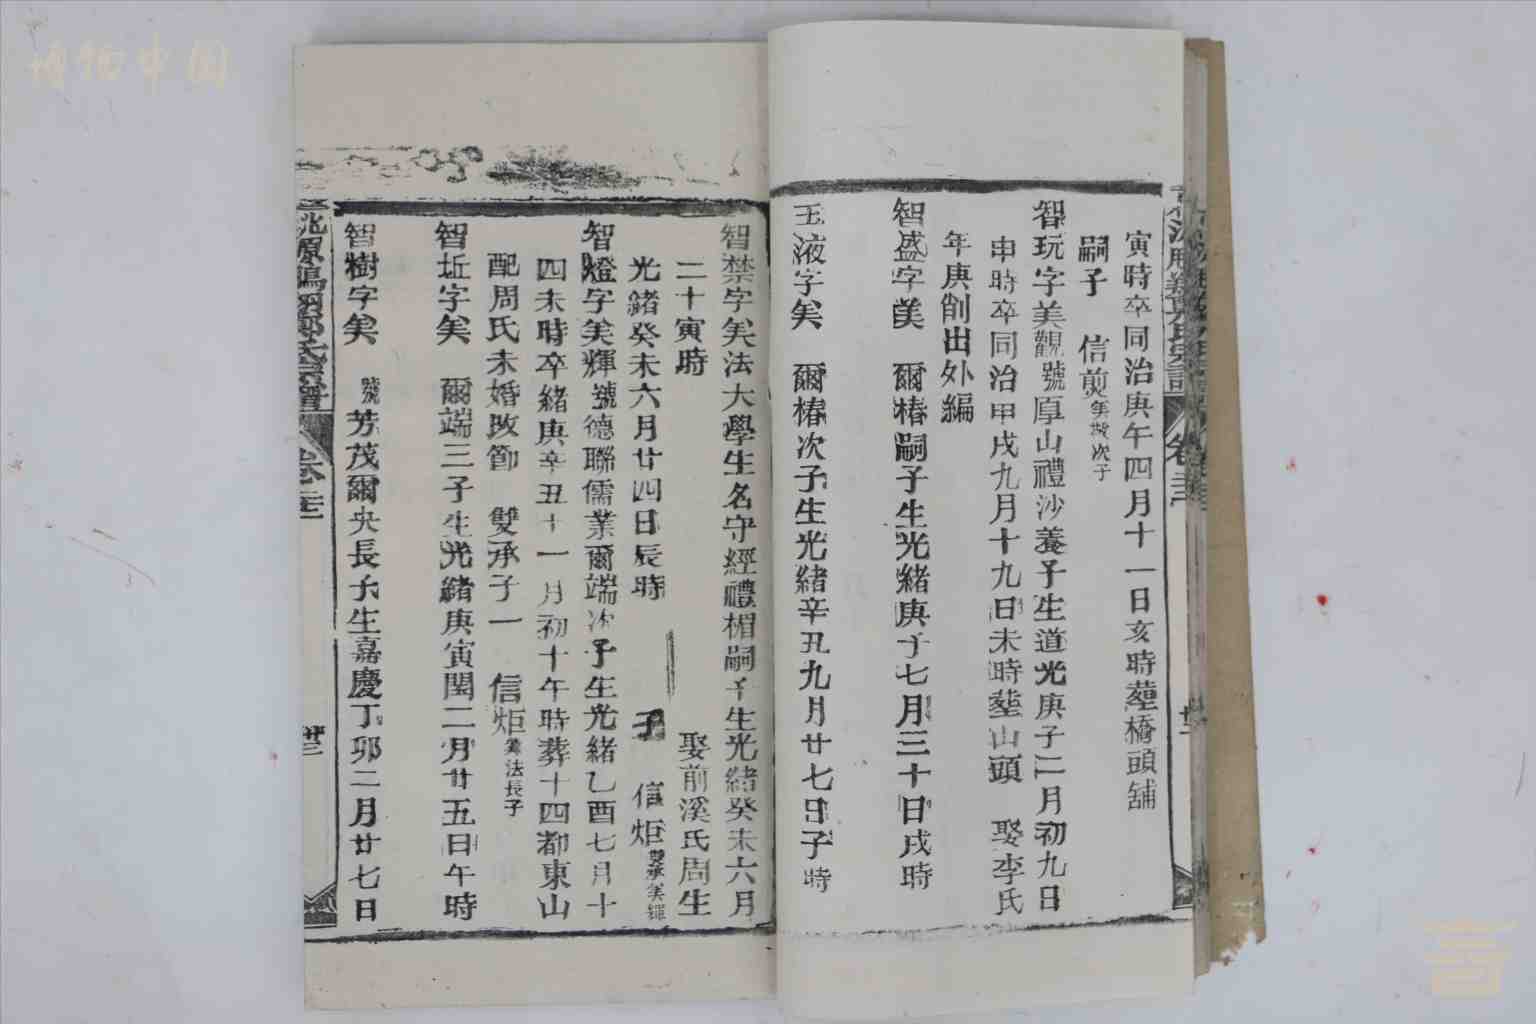 寅時卒同治庚午四月十一日亥時塟橋頭舖
嗣子 信煎美 次子
智玩字美觀號厚山禮沙養子生道光庚子二月初九日
申時卒同治甲戌九月十九日未時塟山頭 娶李氏
年庚削出外編
智盛字美 爾椿嗣子生光緒庚子七月三十日戌時
玉液字美 爾椿次子生光緒辛丑九月廿七日子時
智禁字美法大學生名守經禮楣嗣子生光緒癸未六月
二十寅時 娶前溪氏周生
光緒癸未六月廿四日辰時 子 信炬雙承美輝
智燈字美輝號德聯儒業爾端次子生光緒乙酉七月十
四未時卒緒庚辛丑十一月初十午時葬十四都東山
配周氏未婚改節 雙承子一 信炬美法長子
智坵字美 爾端三子生光緒庚寅閏二月廿五日午時
智樹字美 號芳茂爾央長子生嘉慶丁卯二月廿七日
桃源鳴 氏宗譜 卷
博物中国